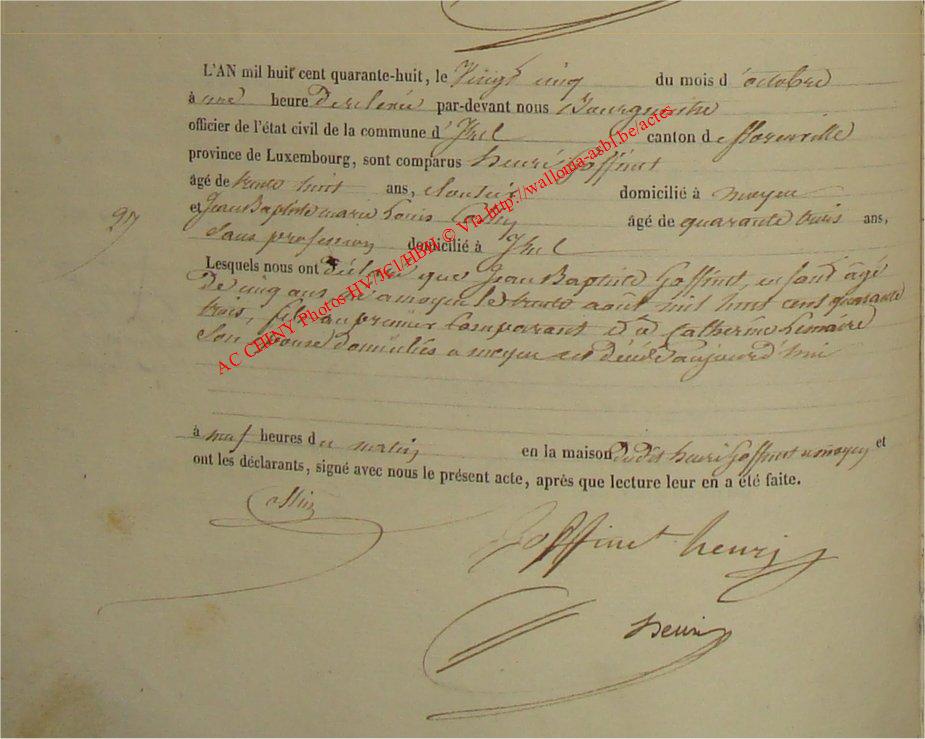 L'AN mil huit cent quarante-huit, le Vingt cinq du mois d'octobre
à une heure de relevée par-devant nous Bourgmestre
officier de l'état civil de la commune d'Izel canton de florenville
province de Luxembourg, sont comparus henri Goffinet
âgé de trente huit ans, domicilié à moyen
et Jean Baptiste marie Louis âgé de quarante trois ans,
Sans profession domicilié à Izel
Lesquels nous ont déclaré que Jean Baptiste Goffinet, enfant âgé
De cinq ans né a moyen le trente aout mil huit cent quarante
trois, fils au premier Comparant et a Catherine Lemaire
Son épouse domiciliés a moyen est décédé aujourd'hui
à neuf heures du matin en la maison dudit henri Goffinet a moyen et
ont les déclarants, signé avec nous le présent acte, après que lecture leur en a été faite.
Goffinet henri
AC CHINY Photos HV/JCl/HBM © Via http://wallonia-asbl.be/actes